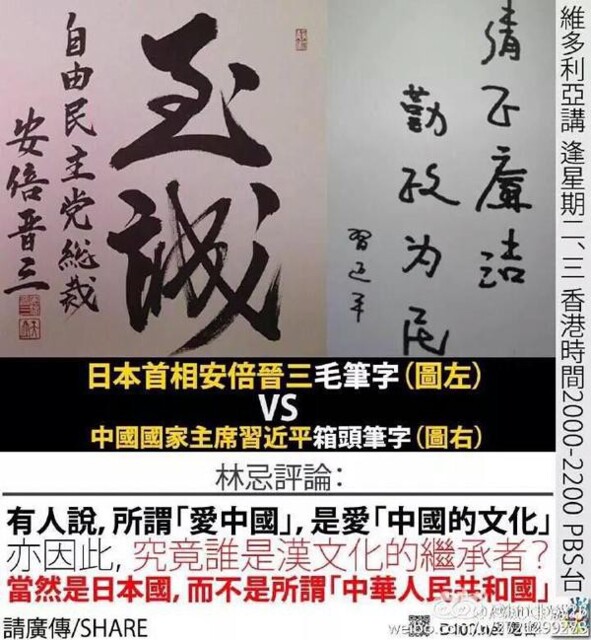 至誠
自由民主党総裁
安倍晋三
清正廉洁
勤政为民
習近平
維多利亞講 逢星期二、三 香港時間2000-2200 PBS台
日本首相安倍晉三毛筆字(圖左)
VS
中國國家主席習近平箱頭筆字(圖右)
林忌評論:
有人說, 所謂「愛中國」, 是愛「中國的文化」
亦因此, 究竟誰是漢文化的繼承者?
當然是日本國, 而不是所謂「中華人民共和國」
請廣傳/SHARE